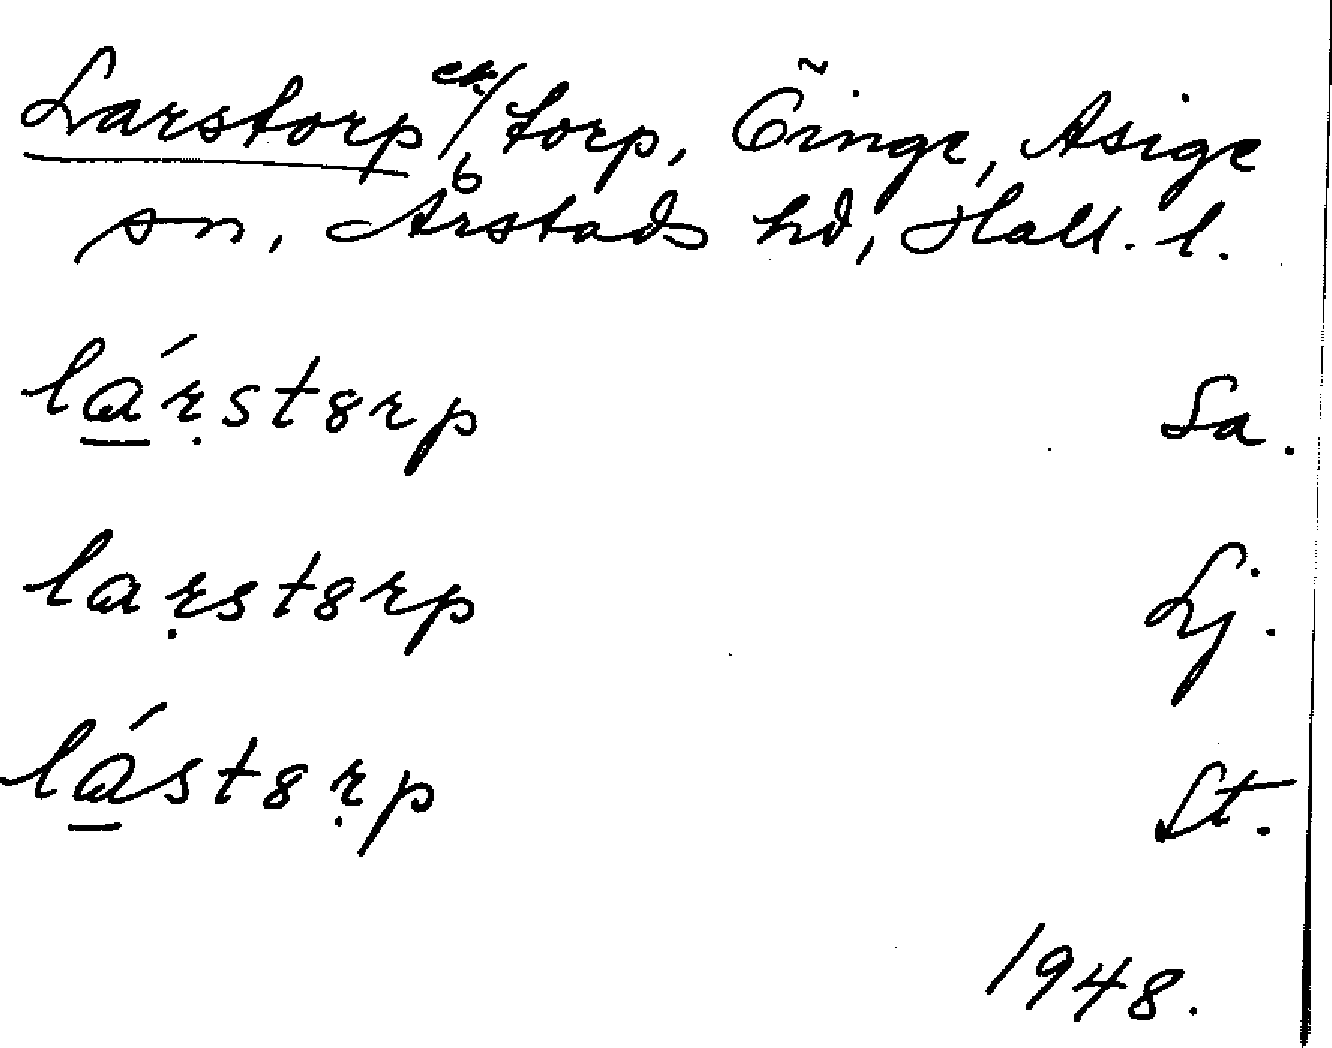 Larstorp ek/ torp, Öinge, Asige
sn, Årstads hd, Hall. l.
lárstərp Sa.
larstərp Lj.
lástərp St.
1948.